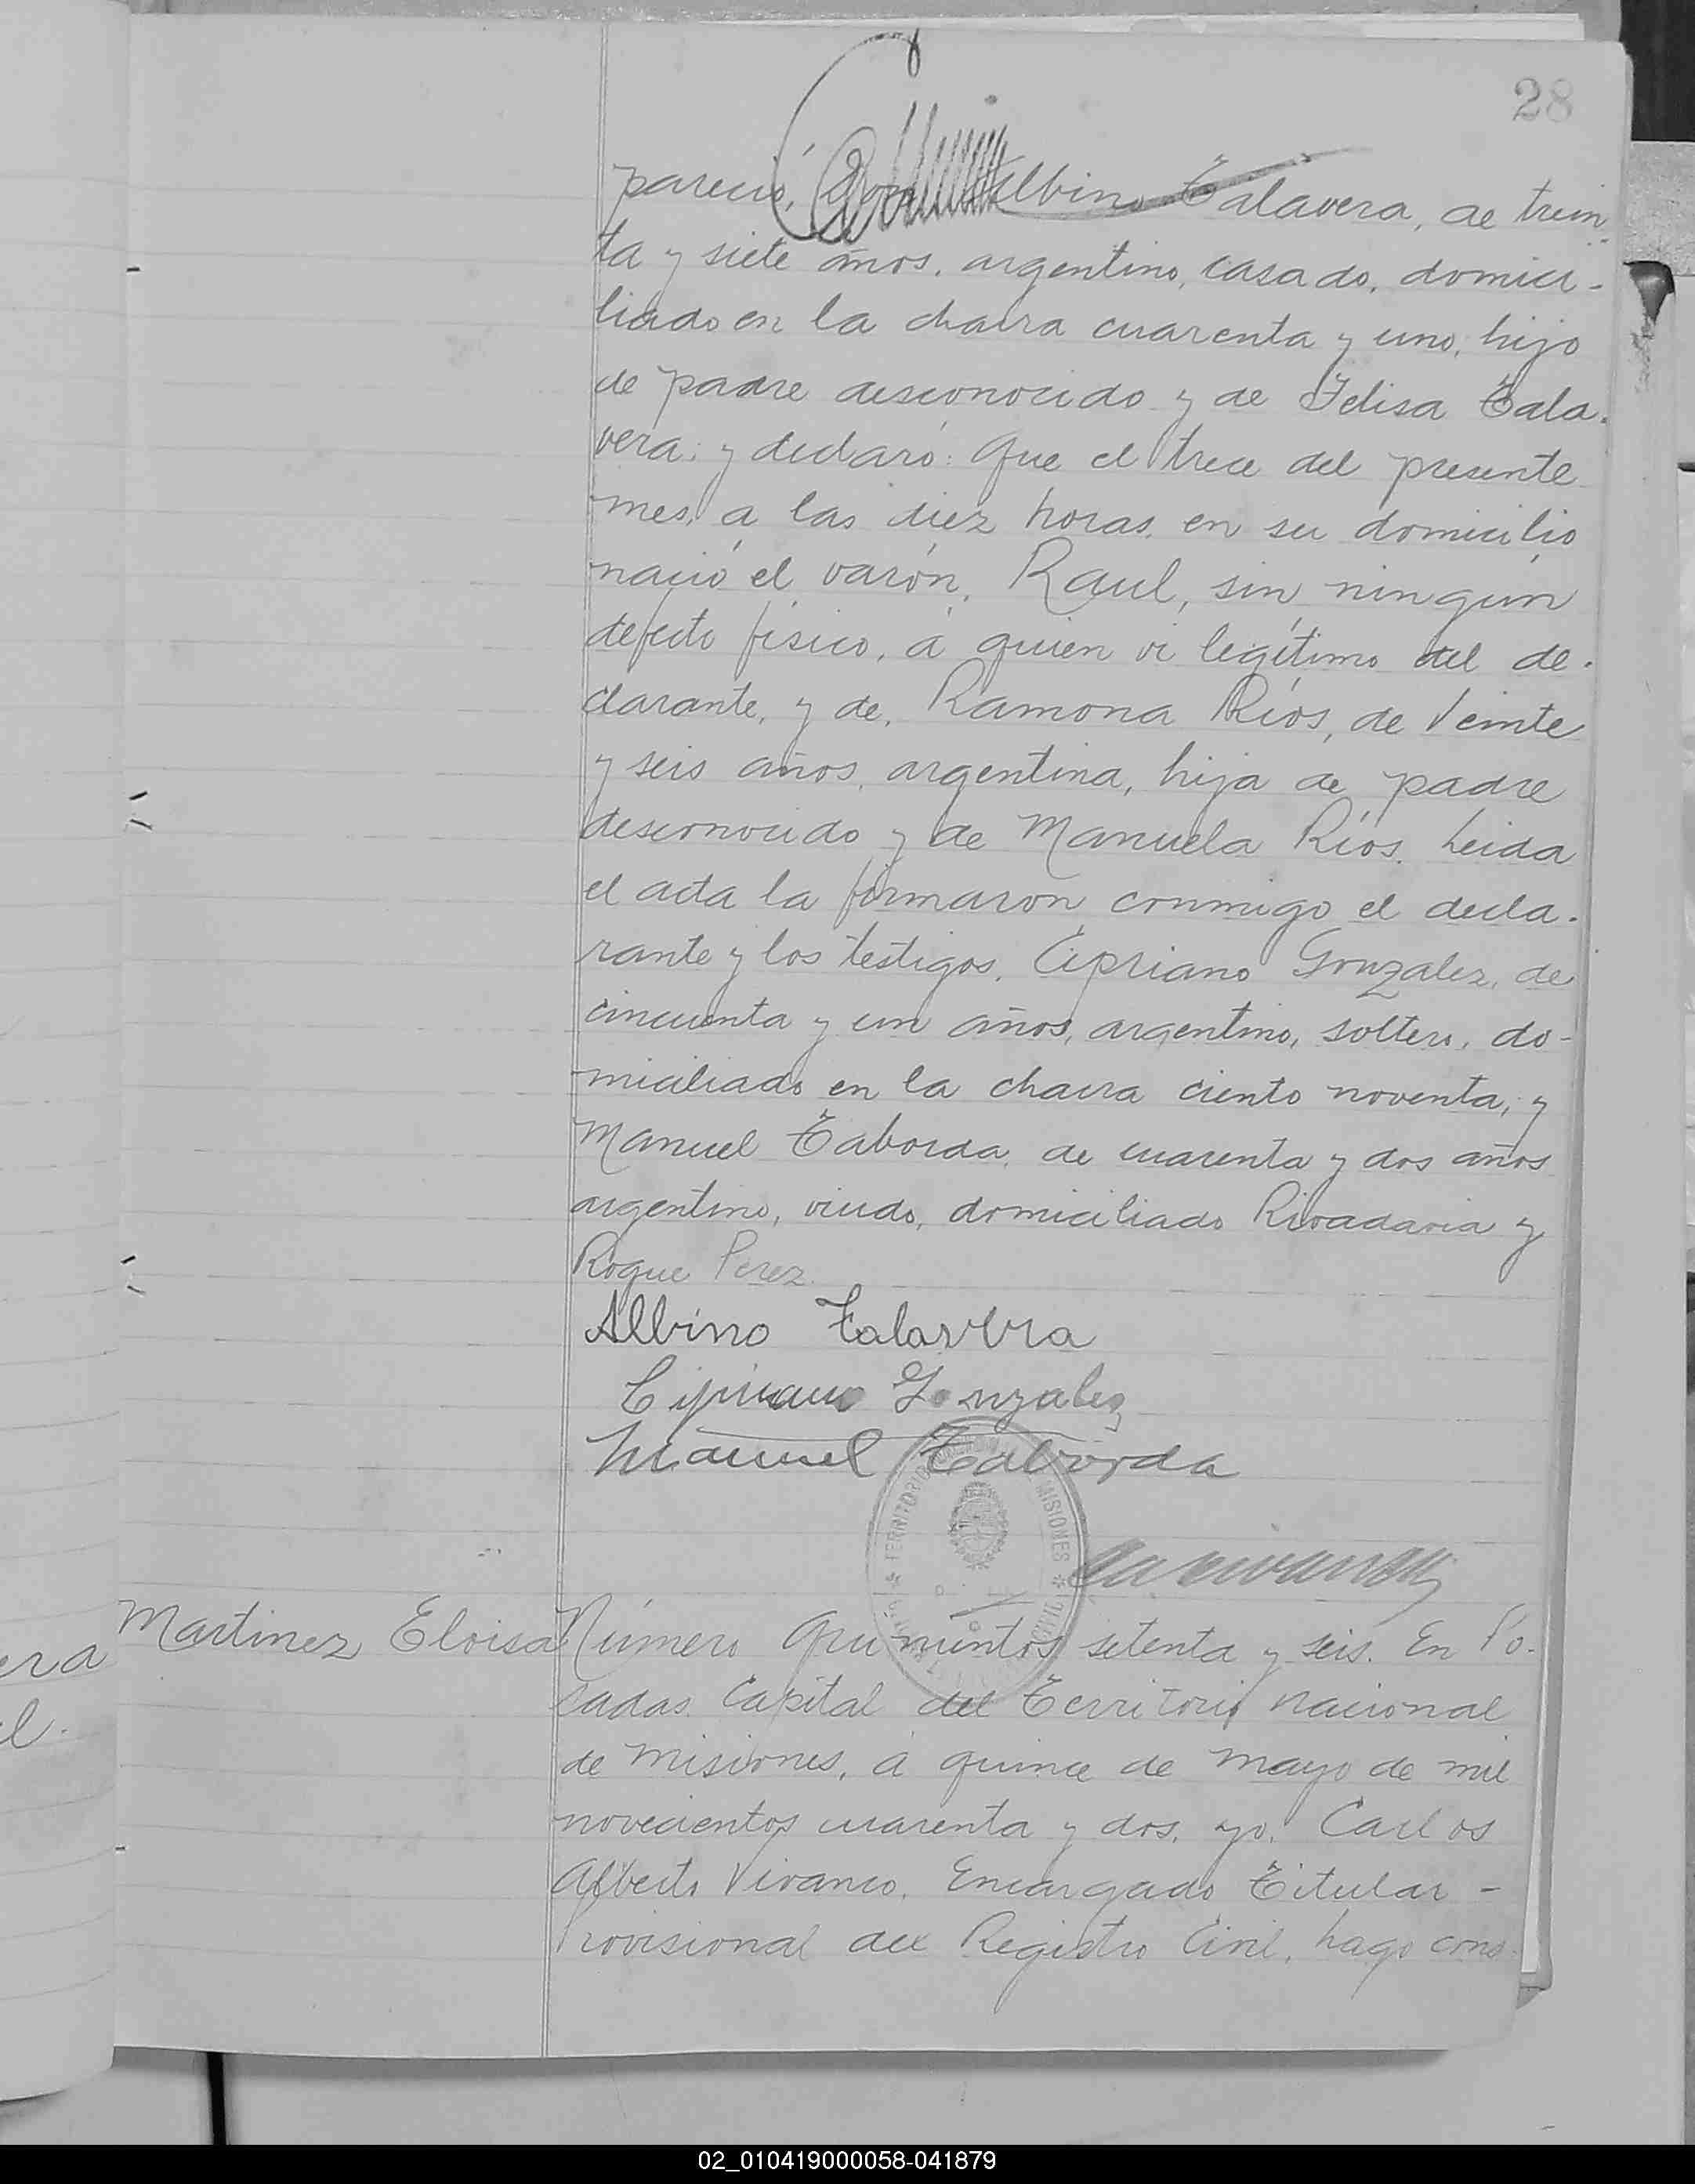 28
pareció, Don Albino Talavera, de trein-
ta y siete años, argentino, casado, domici-
liado en la chacra cuarenta y uno, hijo
de padre desconocido y de Felisa Tala-
vera; y declaró: Que el trece del presente
mes, a las diez horas, en su domicilio
nació el varón, Raul, sin ningún
defecto físico, á quien vi legítimo del de-
clarante, y de, Ramona Ríos, de veinte
y seis años, argentina, hija de padre
desconocido y de Manuela Ríos. Leida
el acta la firmaron conmigo el decla-
rante y los testigos, Cipriano Gonzalez, de
cincuenta y un años, argentino, soltero, do-
miciliado en la chacra ciento noventa, y
Manuel Taborda, de cuarenta y dos años
argentino, viudo, domiciliado Rivadavia y
Roque Perez.
Albino Talavera
Cipriano Gonzalez
Manuel Taborda
TERRITORIO MISIONES
CIVIL
era
l.
Martinez Eloisa
Número Quinientos setenta y seis. En Po-
sadas, Capital del Territorio Nacional
de Misiones, á quince de mayo de mil
novecientos cuarenta y dos, yo, Carlos
Alberto Vivanco, Encargado Titular -
Provisional del Registro Civil, hago cons-
02_010419000058-041879